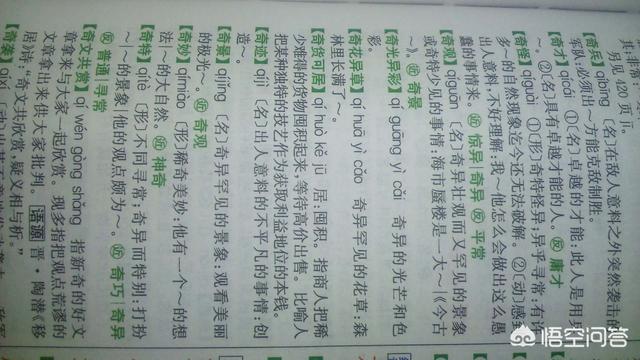 另见 420 页 jī。
【奇兵】qíbīng〔名〕在敌人意料之外突然袭击的
军队：必须出～方能克敌制胜。
【奇才】qícái ①〔名〕卓越的才能：此人是用兵
～。②〔名〕具有卓越才能的人。反 庸才
【奇怪】qíguài ①〔形〕奇特怪异；异乎寻常：有许
多～的自然现象迄今还无法破解。②〔动〕感到
出人意料，不好理解：我～他怎么会做出这么愚
蠢的事情来。近 惊异 奇异 反 平常
【奇观】qíguān〔名〕奇异壮观而又罕见的景象
或奇特少见的事情：海市蜃楼是一大～｜《今古
～》。近 奇景
【奇光异彩】qí guāng yì cǎi 奇异的光芒和色
彩。
【奇花异草】qí huā yì cǎo 奇异罕见的花草：森
林里长满了～。
【奇货可居】qí huò kě jū 居：囤积。指商人把稀
少难得的货物囤积起来，等待高价出售。比喻人
把某种独特的技艺作为获取利益地位的本钱。
【奇迹】qíjì〔名〕出人意料的不平凡的事情：创
造～。
【奇景】qíjǐng〔名〕奇异罕见的景象：观看美丽
的极光～。近 奇观
【奇妙】qímiào〔形〕稀奇美妙：他有一个～的想
法｜～的大自然。近 神奇
【奇特】qítè〔形〕不同寻常；奇异而特别：打扮
～｜～的景象｜他的观点颇为～。近 奇巧 奇异
反 普通 寻常
【奇文共赏】qí wén gòng shǎng 指新奇的好文
章拿来与大家一起欣赏。现多指把观点荒谬的
文章拿出来供大家批判。语源 晋·陶潜《移
居》诗：“奇文共欣赏，疑义相与析。”
【奇袭】qíxí